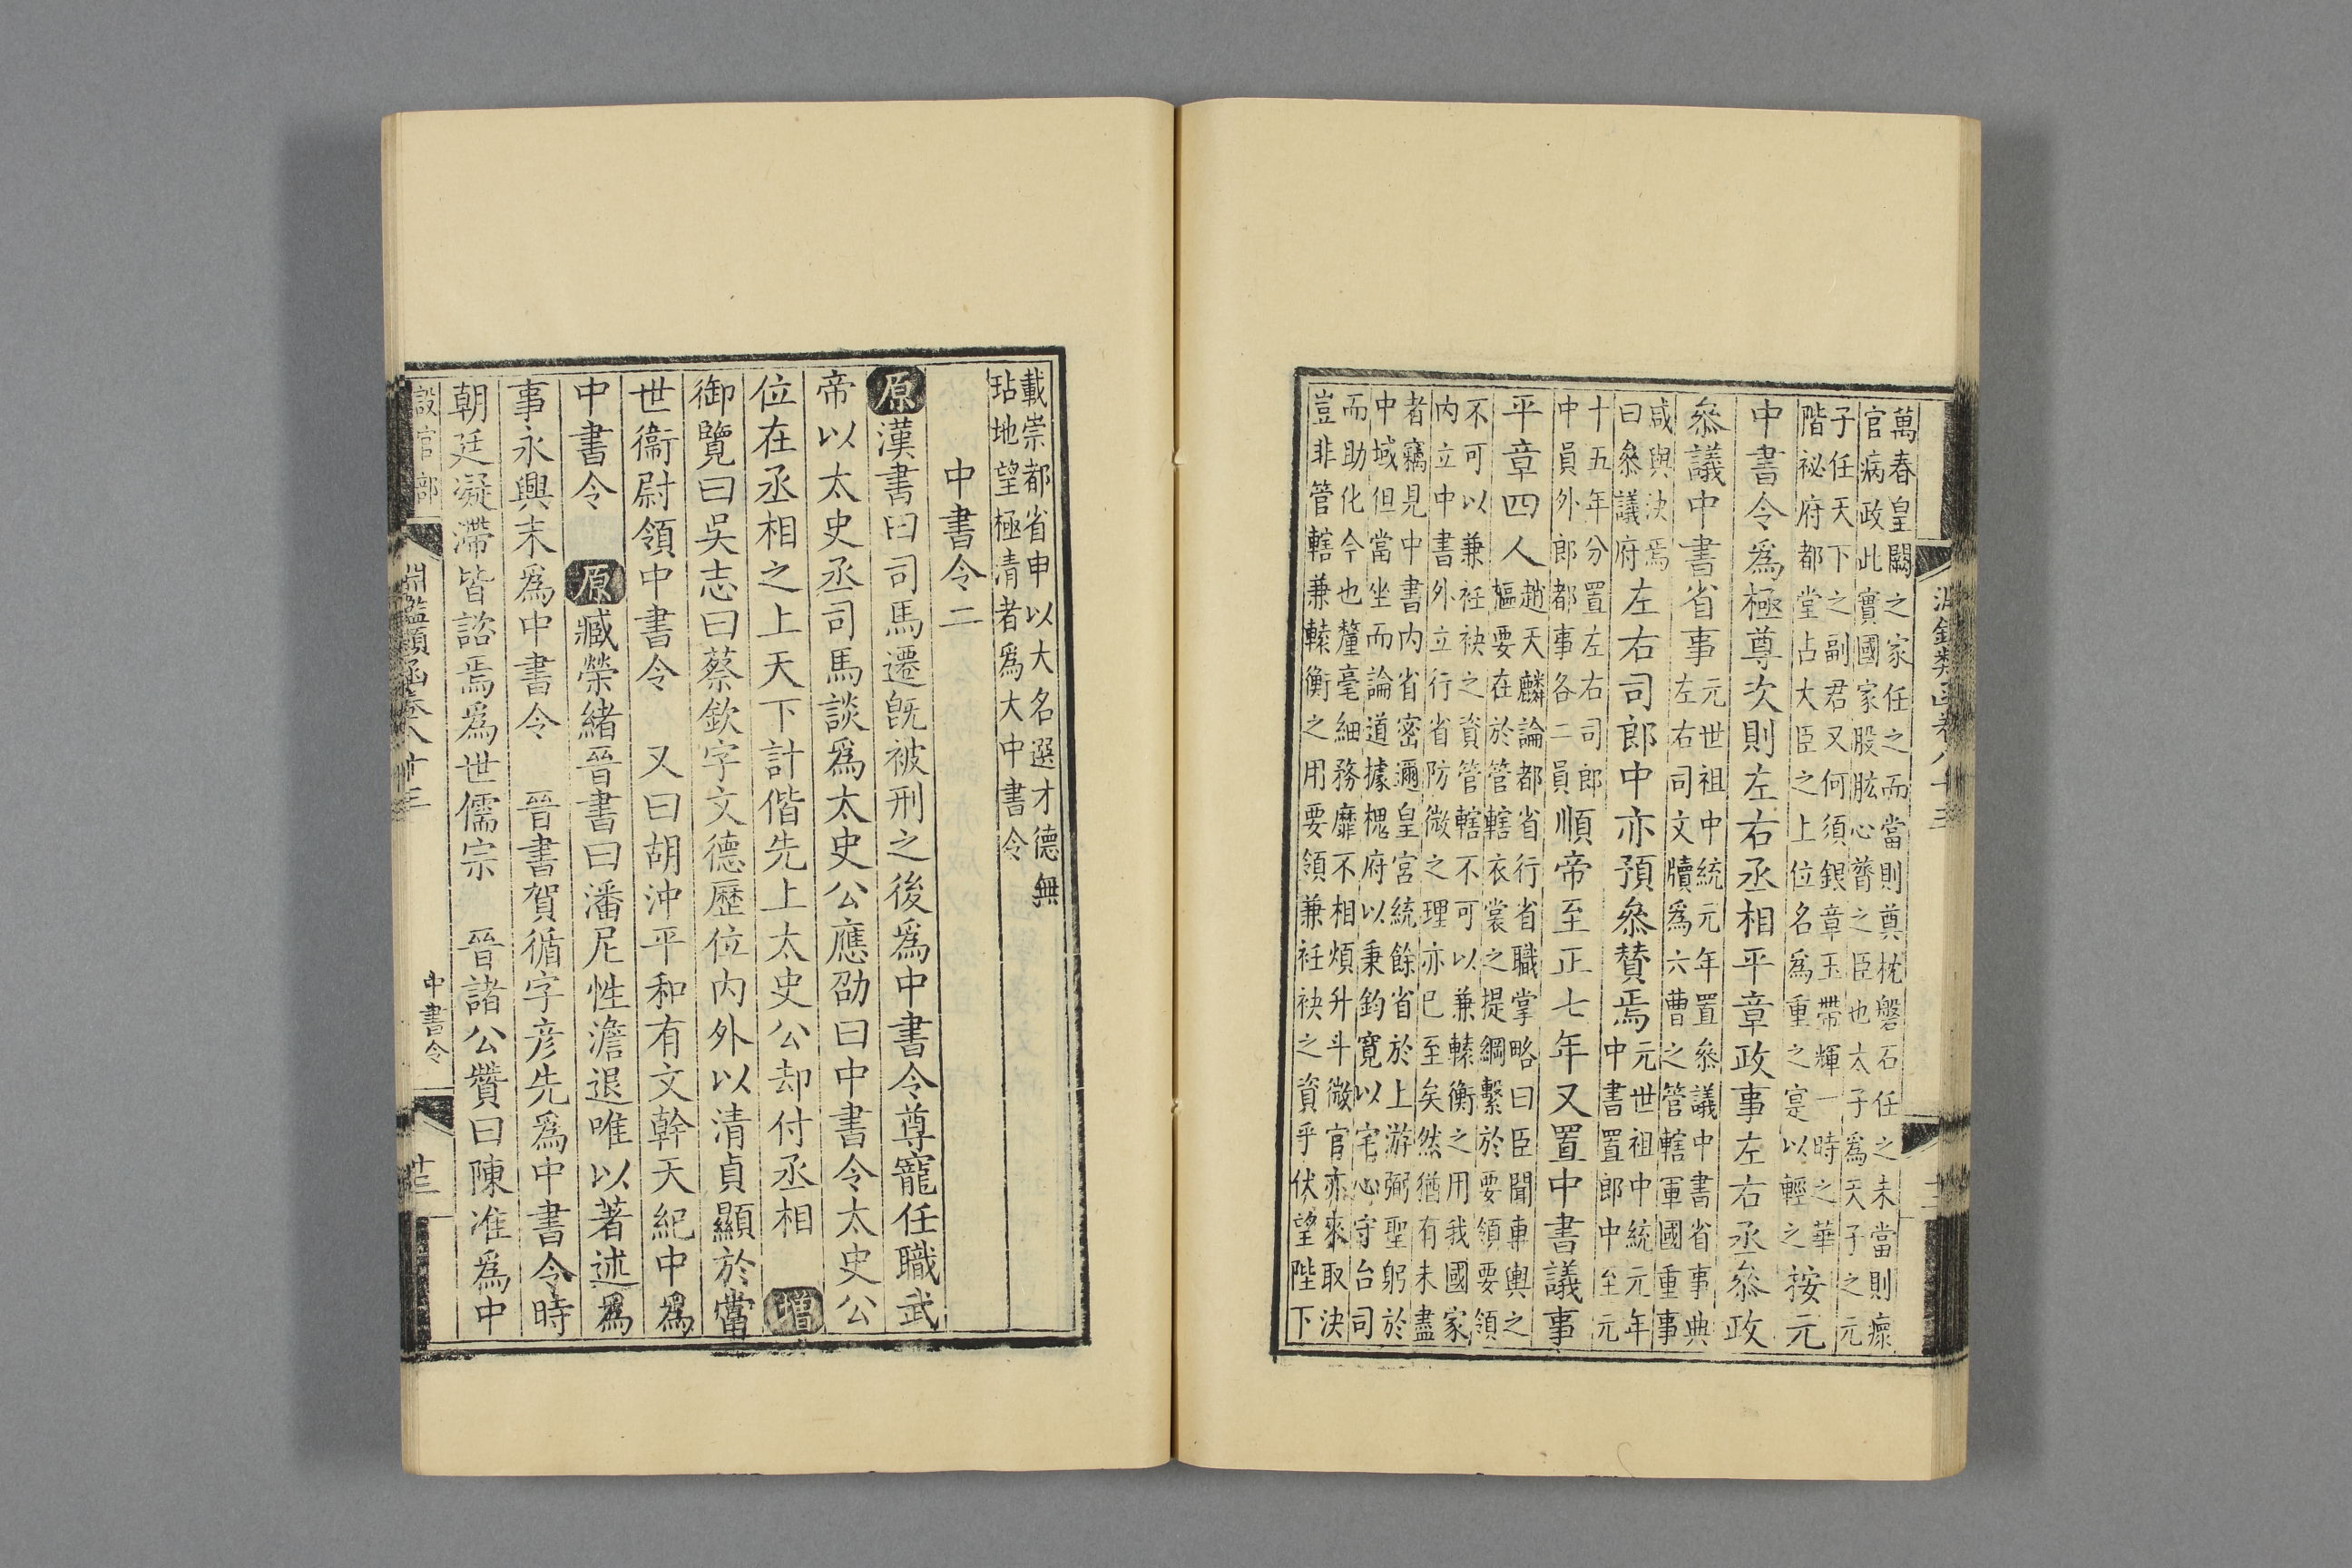 萬春皇闕之家任之而當則奠枕磐石任之未當則瘝
官病政此實國家股肱心膂之臣也太子爲天子之元
子任天下之副君又何須銀章玉帶輝一時之華
階祕府都堂占大臣之上位名爲重之寔以輕之
按元
中書令爲極尊次則左右丞相平章政事左右丞叅政
叅議中書省事
元世祖中統元年置叅議中書省事典
左右司文牘爲六曹之管轄軍國重事
咸與決焉
曰叅議府
左右司郎中亦預叅賛焉
元世祖中統元年
中書置郎中至元
十五年分置左右司郎
中員外郎都事各二員
順帝至正七年又置中書議事
平章四人
趙天麟論都省行省職掌略曰臣聞車輿之
樞要在於管轄衣裳之提綱繫於要領要領
不可以兼衽袂之資管轄不可以兼轅衡之用我國家
内立中書外立行省防微之理亦已至矣然猶有未盡
者竊見中書内省密邇皇宮統餘省於上游弼聖躬於
中域但當坐而論道據槐府以秉鈞寬以宅心守台司
而助化今也釐毫細務靡不相煩升斗微官亦來取決
豈非管轄兼轅衡之用要領兼衽袂之資乎伏望陛下
載崇都省申以大名選才德無
玷地望極清者爲大中書令
中書令二
原漢書曰司馬遷旣被刑之後爲中書令尊寵任職武
帝以太史丞司馬談爲太史公應劭曰中書令太史公
位在丞相之上天下計偕先上太史公却付丞相　增
御覽曰吳志曰蔡欽字文德歷位内外以清貞顯於當
世衞尉領中書令　又曰胡沖平和有文幹天紀中爲
中書令　原臧榮緒晉書曰潘尼性澹退唯以著述爲
事永興末爲中書令　晉書賀循字彦先爲中書令時
朝廷凝滯皆諮焉爲世儒宗　晉諸公贊曰陳准爲中
設官部
淵鑑類函卷八十三
中書令